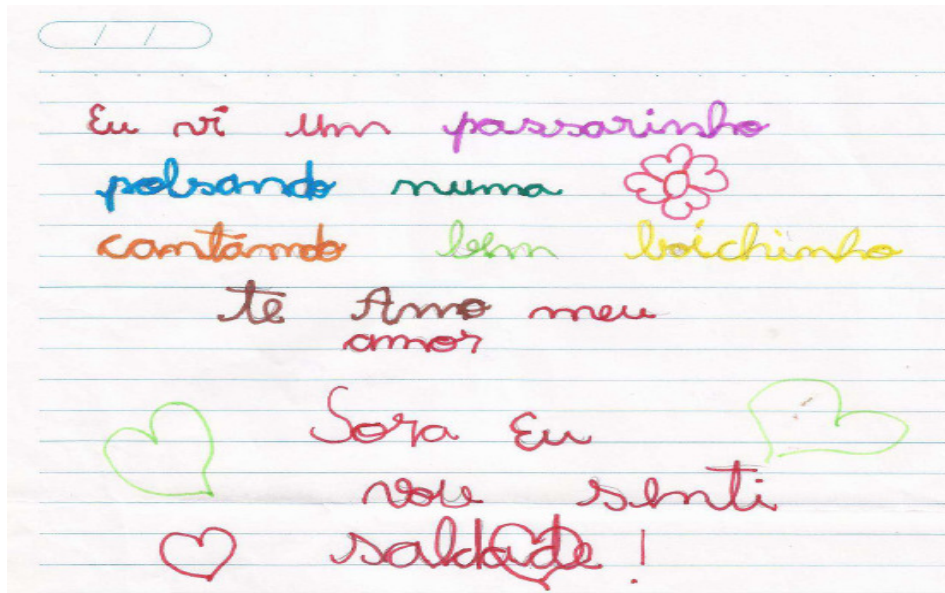 Eu vi um passarinho
polsando numa
cantando bem boichinho
te Amo meu
amor
Sora Eu
vou senti
saldade!